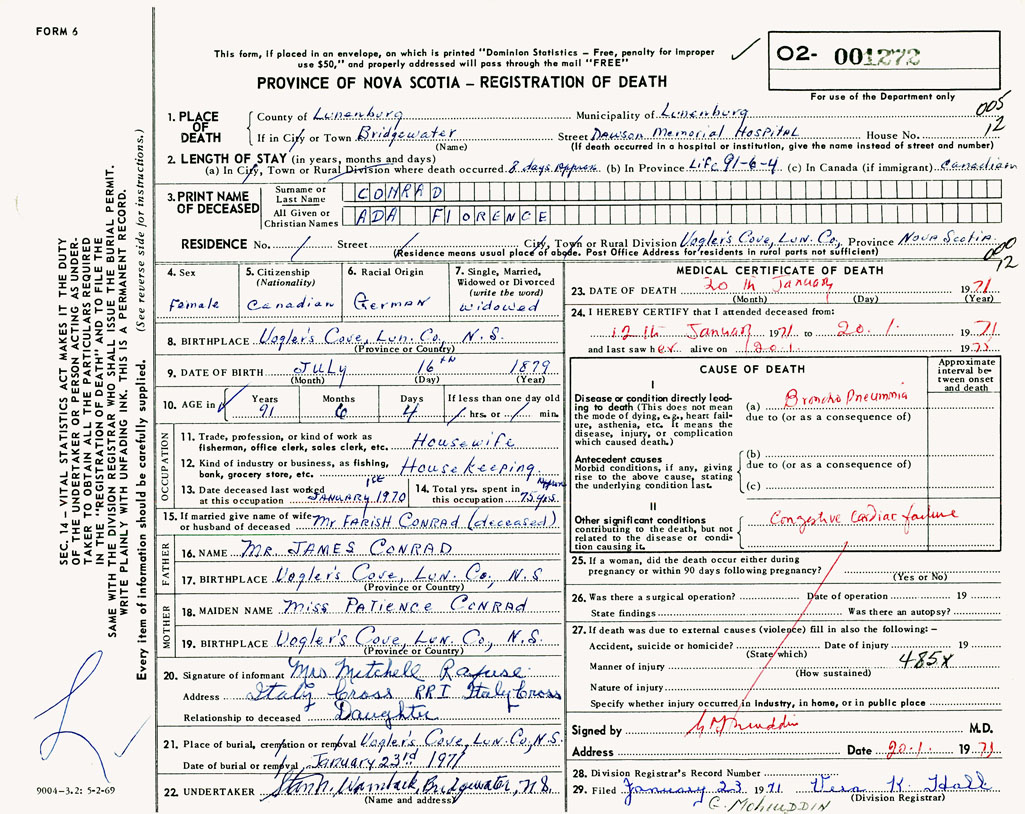 FORM 6
This form, if placed in an envelope, on which is printed "Dominion Statistics – Free, penalty for improper
use $50," and properly addressed will pass through the mail "FREE"
PROVINCE OF NOVA SCOTIA – REGISTRATION OF DEATH
02- 001272
For use of the Department only
005
12
1. PLACE OF DEATH
County of Lunenburg Municipality of Lunenburg
If in City or Town Bridgewater Street Dawson Memorial Hospital House No.
(Name) (If death occurred in a hospital or institution, give the name instead of street and number)
2. LENGTH OF STAY (in years, months and days)
(a) In City, Town or Rural Division where death occurred 8 days Approx. (b) In Province Life 91-6-4 (c) In Canada (if immigrant) Canadian
3. PRINT NAME OF DECEASED
Surname or Last Name CONRAD
All Given or Christian Names ADA FlORENCE
RESIDENCE No. / Street / City, Town or Rural Division Vogler's Cove, Lun. Co, Province Nova Scotia
(Residence means usual place of abode. Post Office Address for residents in rural parts not sufficient)
000
12
4. Sex
Female
5. Citizenship
(Nationality)
Canadian
6. Racial Origin
German
7. Single, Married,
Widowed or Divorced
(write the word)
widowed
8. BIRTHPLACE Vogler's Cove, Lun. Co., N.S.
(Province or Country)
9. DATE OF BIRTH JULY 16th 1879
(Month) (Day) (Year)
10. AGE in Years Months Days If less than one day old
91 6 4 / hrs. or / min.
OCCUPATION
11. Trade, profession, or kind of work as
fishermon, office clerk, sales clerk, etc. Housewife
12. Kind of industry or business, as fishing,
bank, grocery store, etc. Housekeeping.
13. Date deceased last worked
at this occupation January 1st 1970
14. Total yrs. spent in
this occupation 75 yrs. Approx
15. If married give name of wife
or husband of deceased Mr FARISH CONRAD (deceased)
FATHER
16. NAME MR. JAMES CONRAD
17. BIRTHPLACE Vogler's Cove, Lun. Co., N.S
(Province or Country)
MOTHER
18. MAIDEN NAME Miss PATIENCE CONRAD
19. BIRTHPLACE Vogler's Cove, Lun. Co., N.S.
(Province or Country)
20. Signature of informant Mrs Mitchell Rafuse
Address Italy Cross RR1 Italy Cross
Relationship to deceased Daughter
21. Place of burial, cremation or removal Vogler's Cove, Lun. Co, N.S.
Date of burial or removal January 23rd 1971
22. UNDERTAKER Bridgewater, N.S.
(Name and address)
MEDICAL CERTIFICATE OF DEATH
23. DATE OF DEATH 20 th January 1971
(Month) (Day) (Year)
24. I HEREBY CERTIFY that I attended deceased from:
12 th January 1971 to 20.1. 1971
and last saw her alive on 20.1. 1971
CAUSE OF DEATH
Approximate
interval be-
tween onset
and death
I
Disease or condition directly lead-
ing to death (This does not
mean the mode of dying, e.g., heart fail-
ure, asthenia, etc. It means the
disease, injury, or complication
which caused death.)
(a) Broncho Pneumonia
due to (or as a consequence of)
Antecedent causes
Morbid conditions, if any, giving
rise to the above cause, stating
the underlying condition last.
(b)
due to (or as a consequence of)
(c)
II
Other significant conditions
contributing to the death, but not
related to the disease or condi-
tion causing it.
Congestive Cardiac failure
25. If a woman, did the death occur either during
pregnancy or within 90 days following pregnancy?
(Yes or No)
26. Was there a surgical operation? Date of operation 19
State findings Was there an autopsy?
27. If death was due to external causes (violence) fill in also the following: –
Accident, suicide or homicide? Date of injury 19
(State which)
Manner of injury 485X
(How sustained)
Nature of injury
Specify whether injury occurred in industry, in home, or in public place
Signed by M.D.
Address Date 20.1. 1971
28. Division Registrar's Record Number
29. Filed January 23 1971 Vera K Hall
(Division Registrar)
G. MOHIUDDIN
SEC. 14 – VITAL STATISTICS ACT MAKES IT THE DUTY
OF THE UNDERTAKER OR PERSON ACTING AS UNDER-
TAKER TO OBTAIN ALL THE PARTICULARS REQUIRED
IN THE "REGISTRATION OF DEATH" AND TO FILE THE
SAME WITH THE DIVISION REGISTRAR WHO SHALL ISSUE THE BURIAL PERMIT.
WRITE PLAINLY WITH UNFADING INK. THIS IS A PERMANENT RECORD.
Every item of information should be carefully supplied. (See reverse side for instructions.)
9004-3.2: 5-2-69